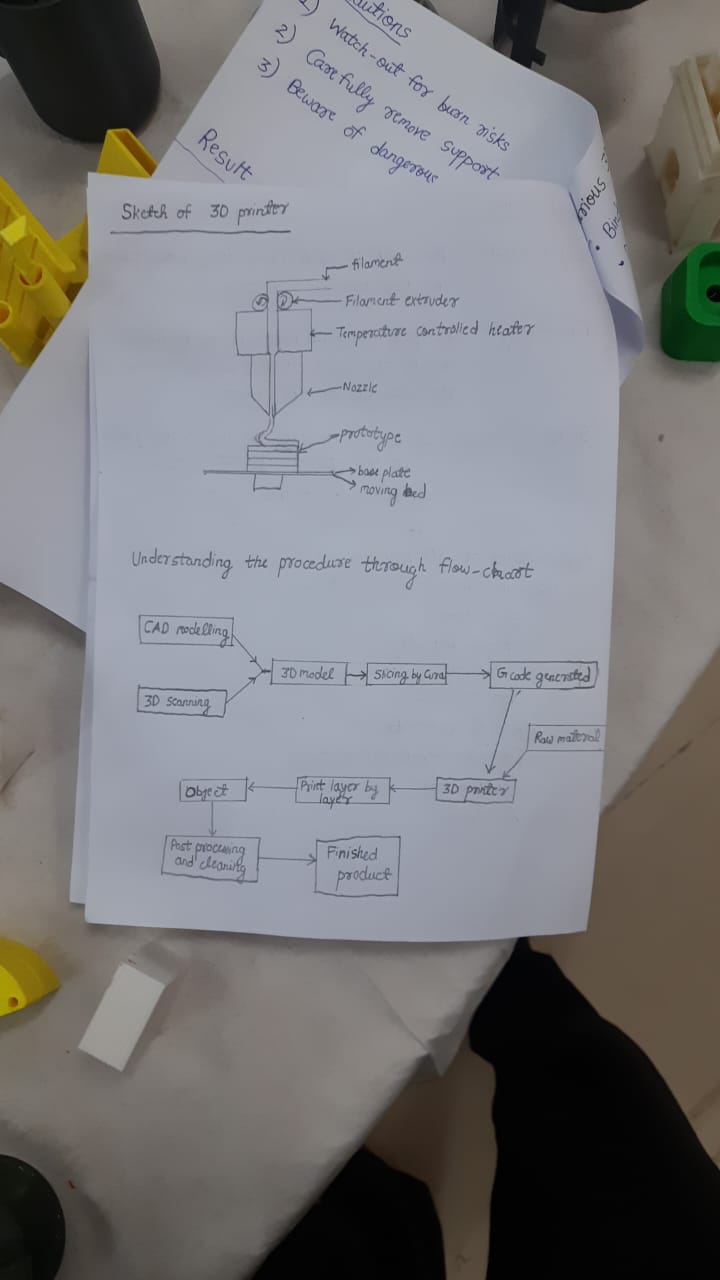 autions
1) Watch-out for burn risks
2) Carefully remove support
3) Beware of dangerous
Result
Sketch of 3D printer
filament
Filament extruder
Temperature controlled heater
Nozzle
prototype
base plate
moving bed
Understanding the procedure through flow-chart
CAD modelling
3D scanning
3D model
Slicing by Cura
G code generated
Raw material
3D printer
Print layer by
layer
Object
Post processing
and cleaning
Finished
product